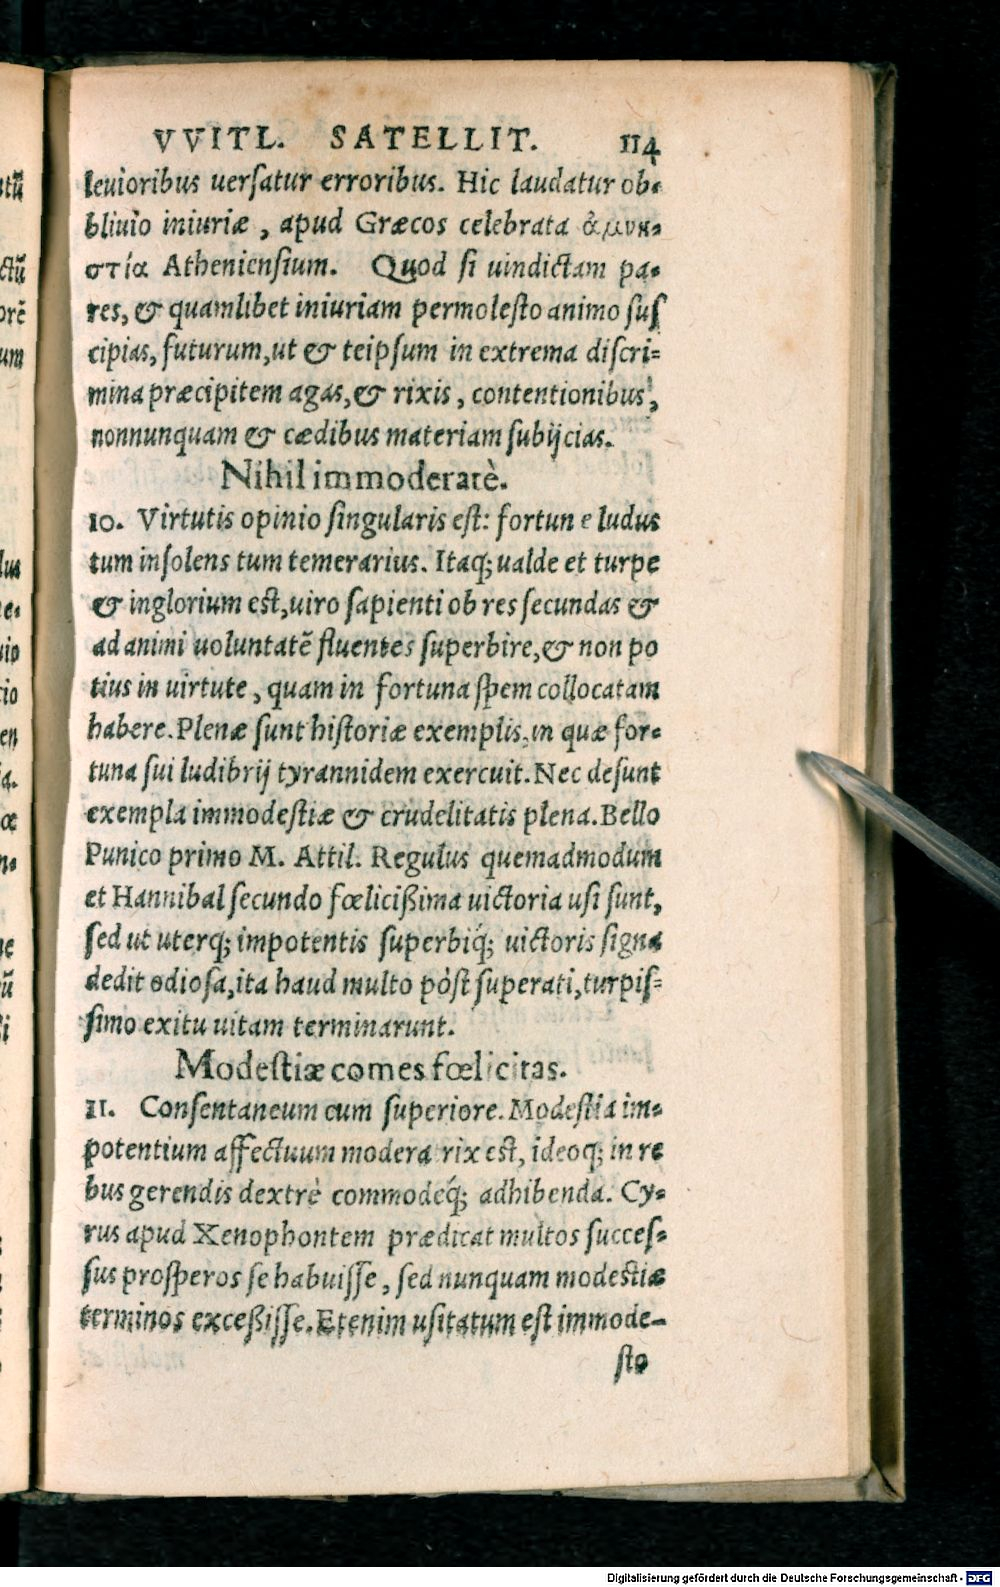 VVITL. SATELLIT. 114
leuioribus uersatur erroribus. Hic laudatur ob-
bliuio iniuriæ, apud Græcos celebrata ἀμνη-
στία Atheniensium. Quod si uindictam pa-
res, & quamlibet iniuriam permolesto animo sus
cipias, futurum, ut & teipsum in extrema discri-
mina præcipitem agas, & rixis, contentionibus,
nonnunquam & cædibus materiam subijcias.
Nihil immoderatè.
10. Virtutis opinio singularis est: fortun e ludus
tum insolens tum temerarius. Itaq; ualde et turpe
& inglorium est, uiro sapienti ob res secundas &
ad animi uoluntatẽ fluentes superbire, & non po
tius in uirtute, quam in fortuna spem collocatam
habere. Plenæ sunt historiæ exemplis, in quæ for-
tuna sui ludibrij tyrannidem exercuit. Nec desunt
exempla immodestiæ & crudelitatis plena. Bello
Punico primo M. Attil. Regulus quemadmodum
et Hannibal secundo fœlicißima uictoria usi sunt,
sed ut uterq; impotentis superbiq́; uictoris signa
dedit odiosa, ita haud multo pòst superati, turpis-
simo exitu uitam terminarunt.
Modestiæ comes fœlicitas.
11. Consentaneum cum superiore. Modestia im-
potentium affectuum modera rix est, ideoq; in re
bus gerendis dextrè commodeq́; adhibenda. Cy-
rus apud Xenophontem prædicat multos succes-
sus prosperos se habuisse, sed nunquam modestiæ
terminos exceßisse. Etenim usitatum est immode-
sto
Digitalisierung gefördert durch die Deutsche Forschungsgemeinschaft - DFG